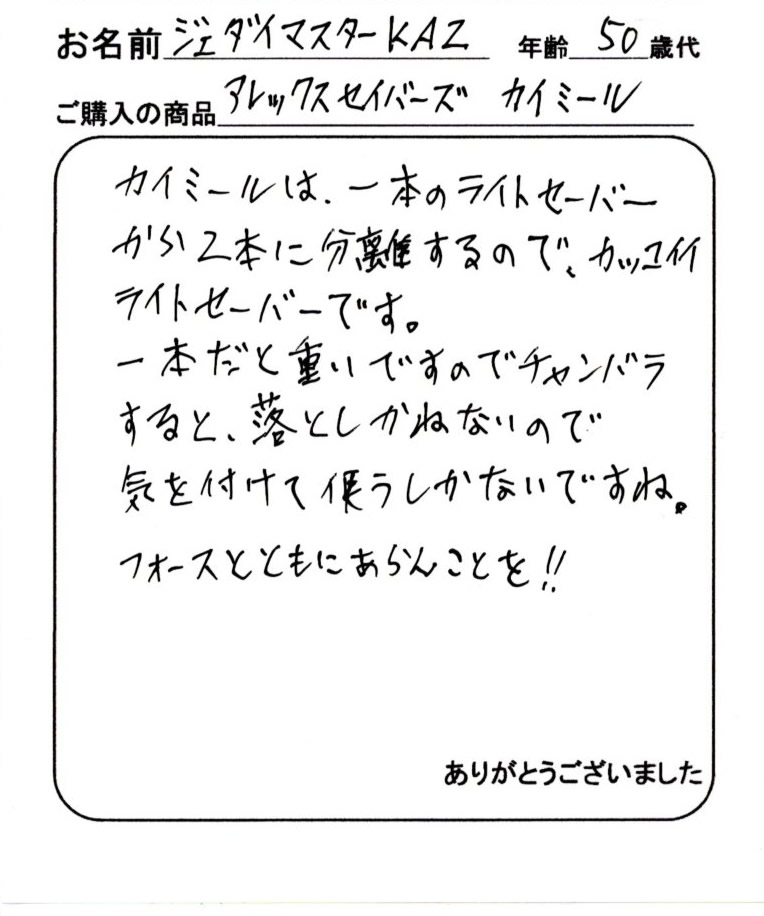 お名前 ジェダイマスターKAZ 年齢 50 歳代
ご購入の商品 アレックスセイバーズ カイミール
カイミールは、一本のライトセーバー
から2本に分離するので、カッコイイ
ライトセーバーです。
一本だと重いですのでチャンバラ
すると、落としかねないので
気を付けて使うしかないですね。
フォースとともにあらんことを!!
ありがとうございました